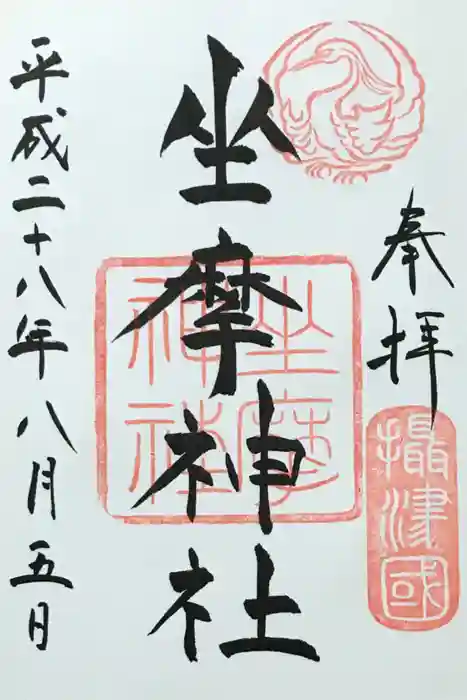 奉拝
攝津國
坐摩神社
坐摩神社
平成二十八年八月五日